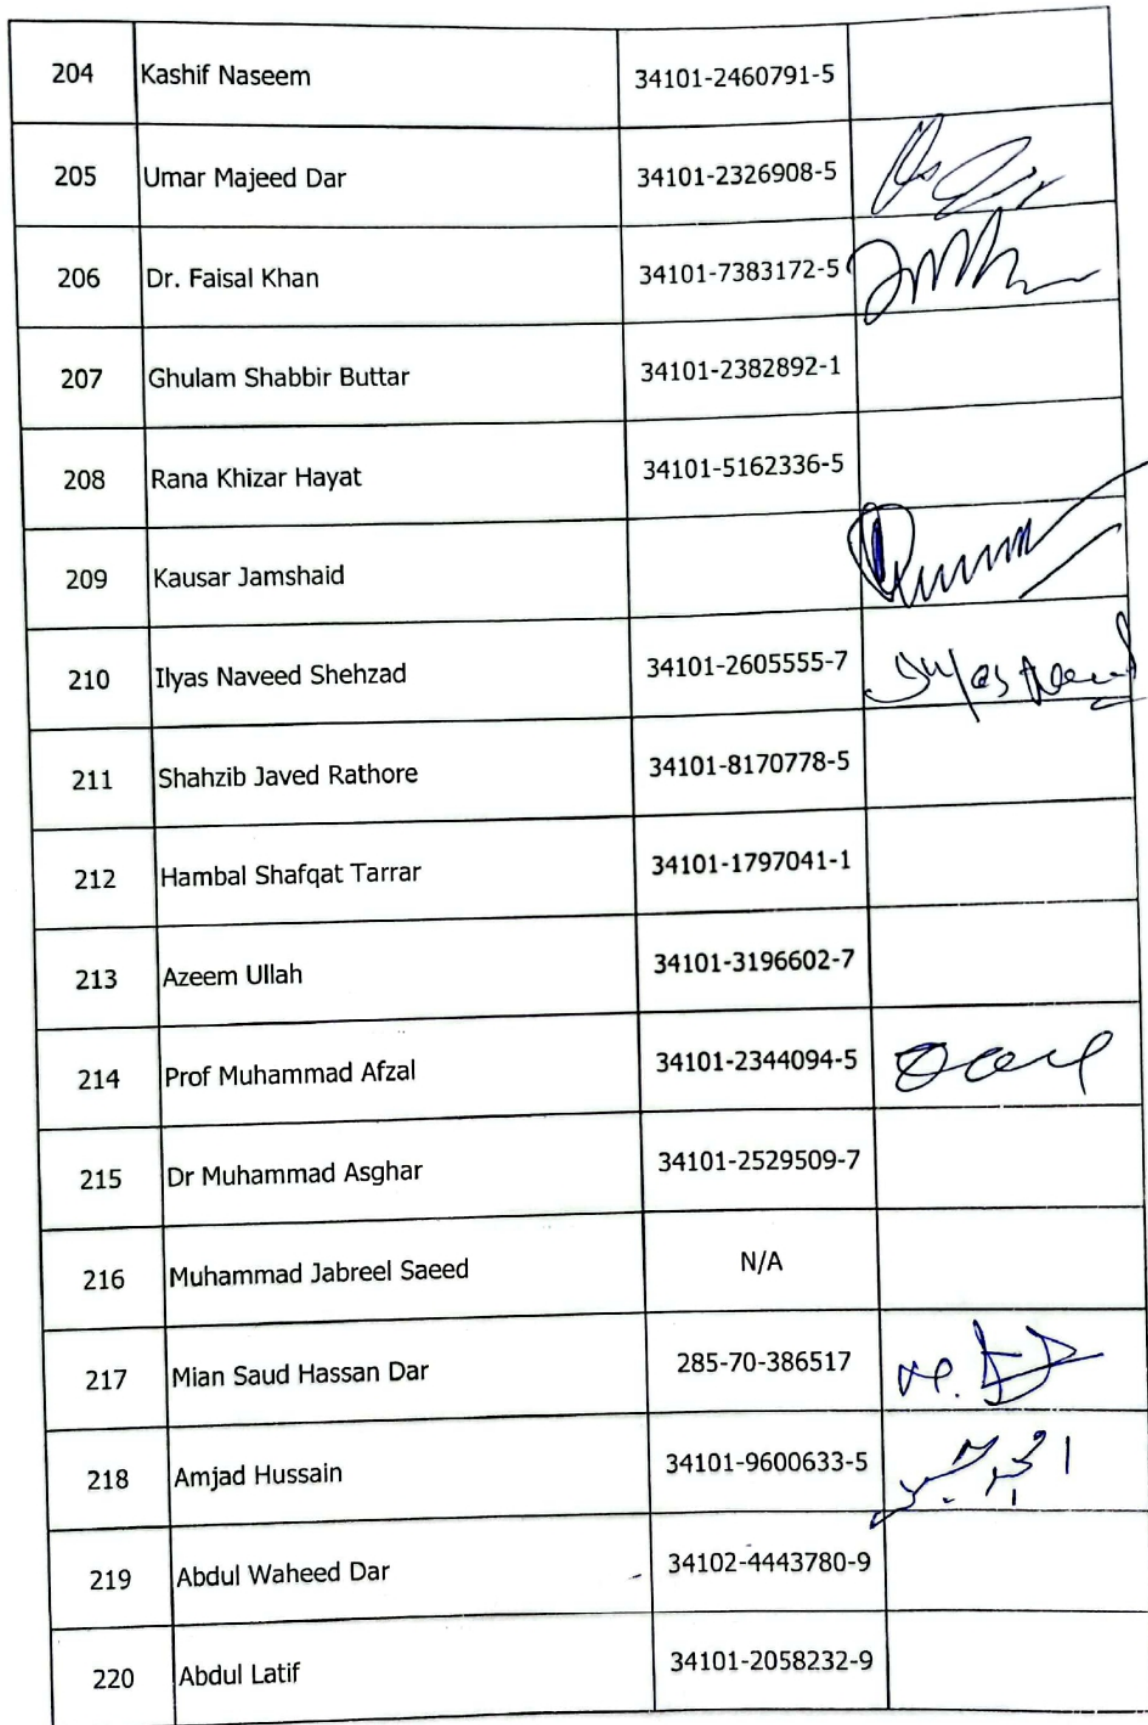 204 Kashif Naseem 34101-2460791-5
205 Umar Majeed Dar 34101-2326908-5
206 Dr. Faisal Khan 34101-7383172-5
207 Ghulam Shabbir Buttar 34101-2382892-1
208 Rana Khizar Hayat 34101-5162336-5
209 Kausar Jamshaid
210 Ilyas Naveed Shehzad 34101-2605555-7
211 Shahzib Javed Rathore 34101-8170778-5
212 Hambal Shafqat Tarrar 34101-1797041-1
213 Azeem Ullah 34101-3196602-7
214 Prof Muhammad Afzal 34101-2344094-5
215 Dr Muhammad Asghar 34101-2529509-7
216 Muhammad Jabreel Saeed N/A
217 Mian Saud Hassan Dar 285-70-386517
218 Amjad Hussain 34101-9600633-5
219 Abdul Waheed Dar 34102-4443780-9
220 Abdul Latif 34101-2058232-9